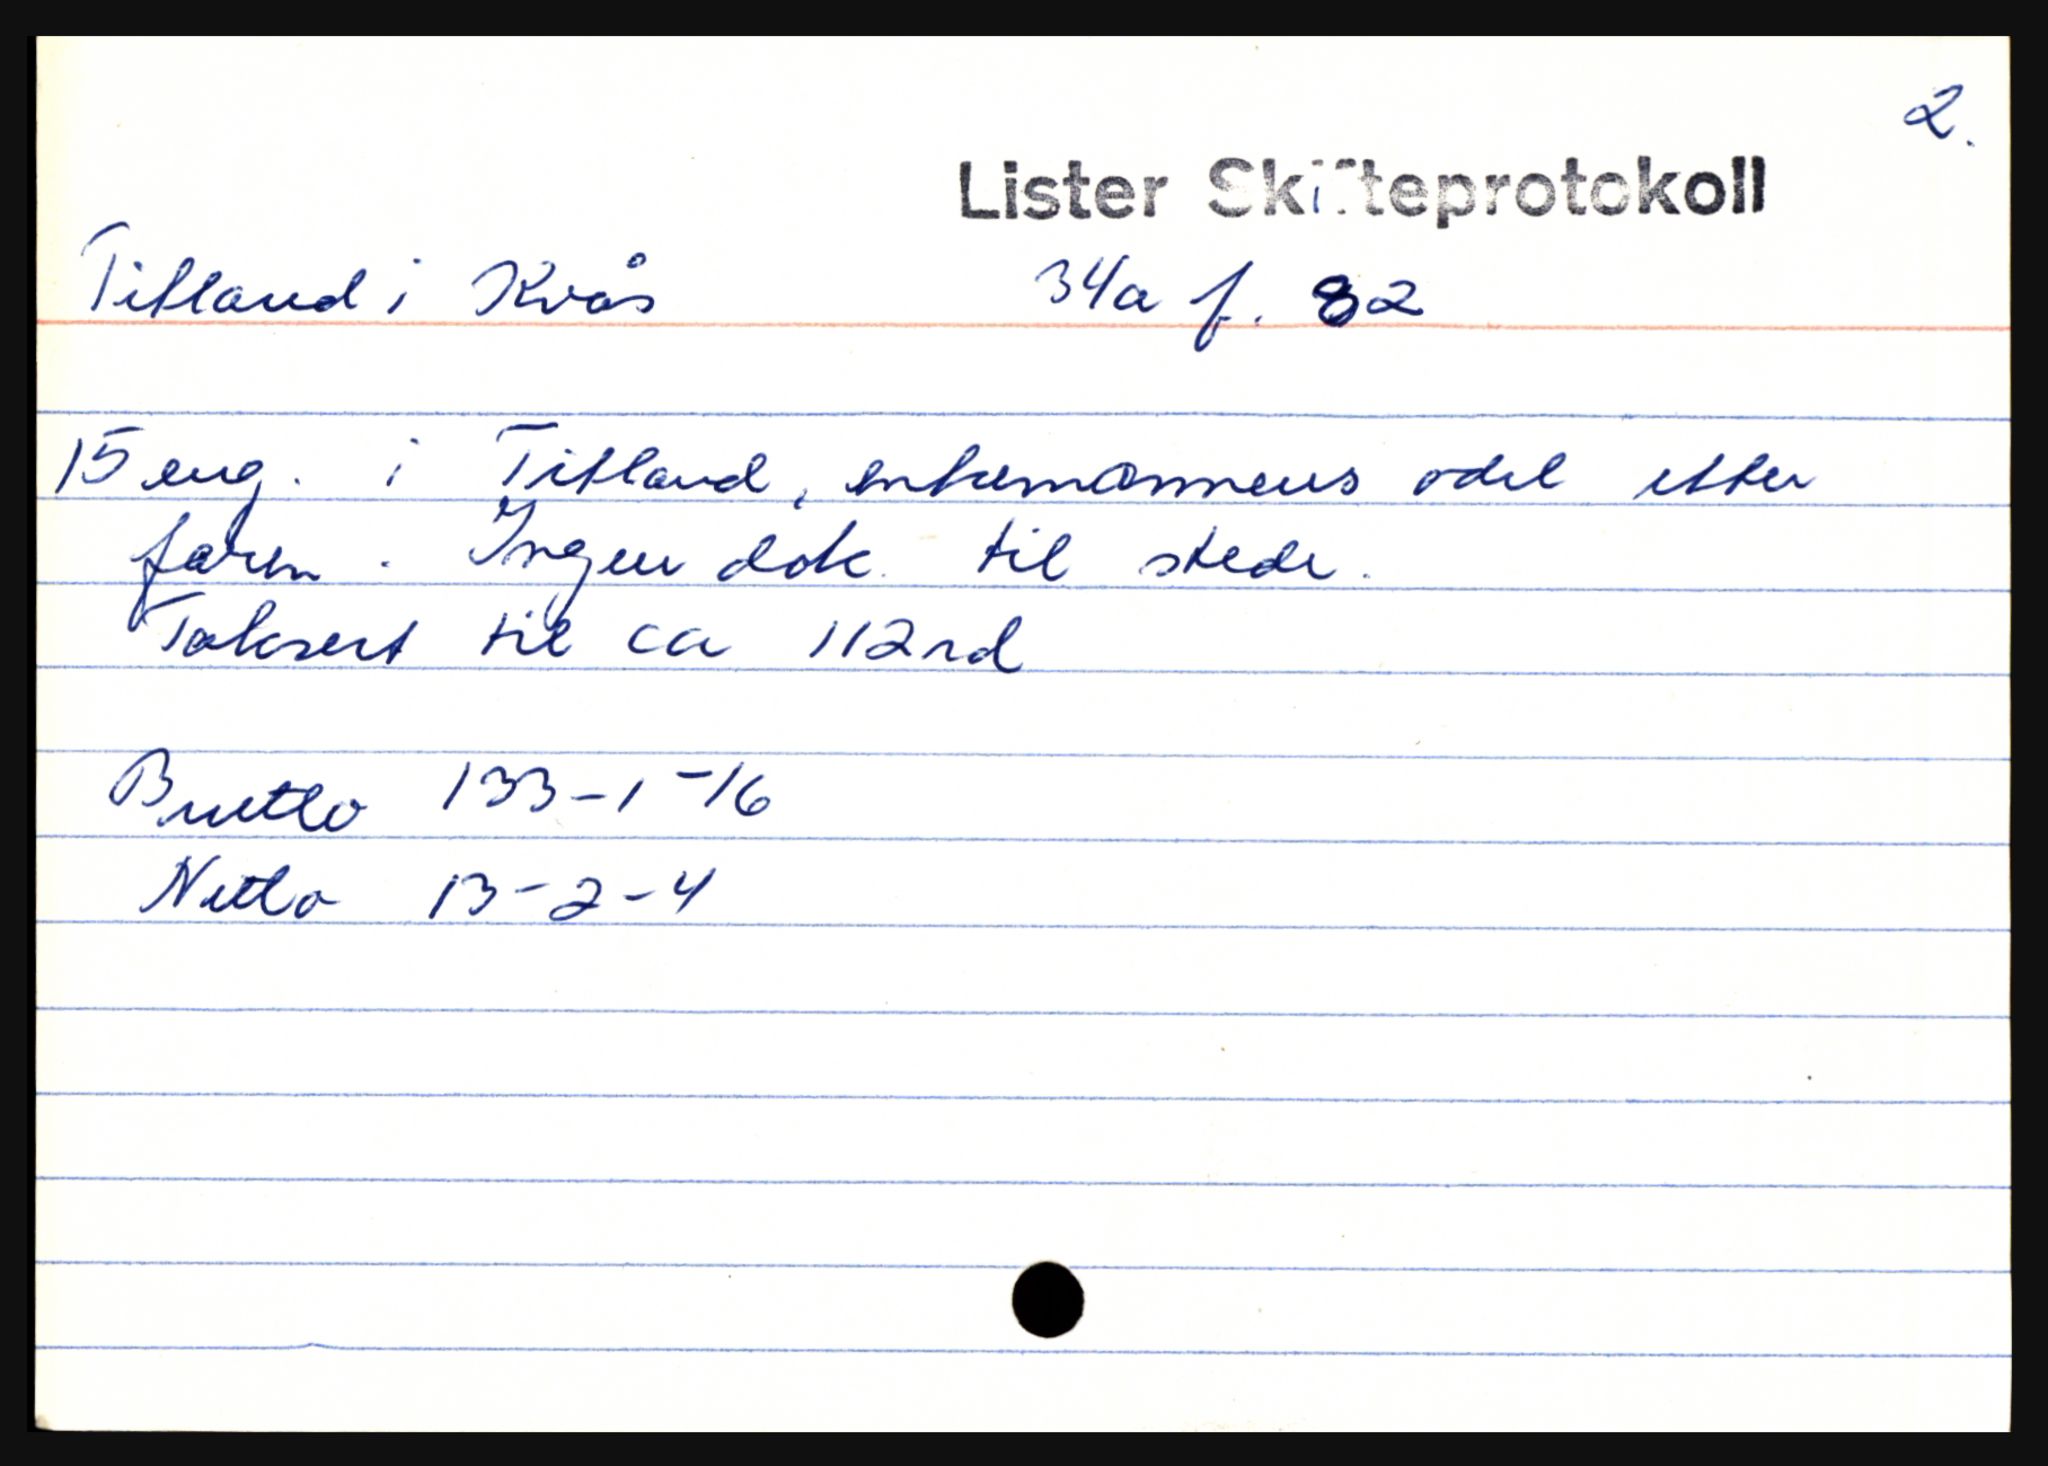 2.
Lister Skifteprotokoll
Titland i Kvås 34a f. 82
15 eng. i Titland, enkemannens odel etter
faren. Ingen dok. til stede.
Taksert til ca 112 rd
Brutto 133-1-16
Netto 13-2-4